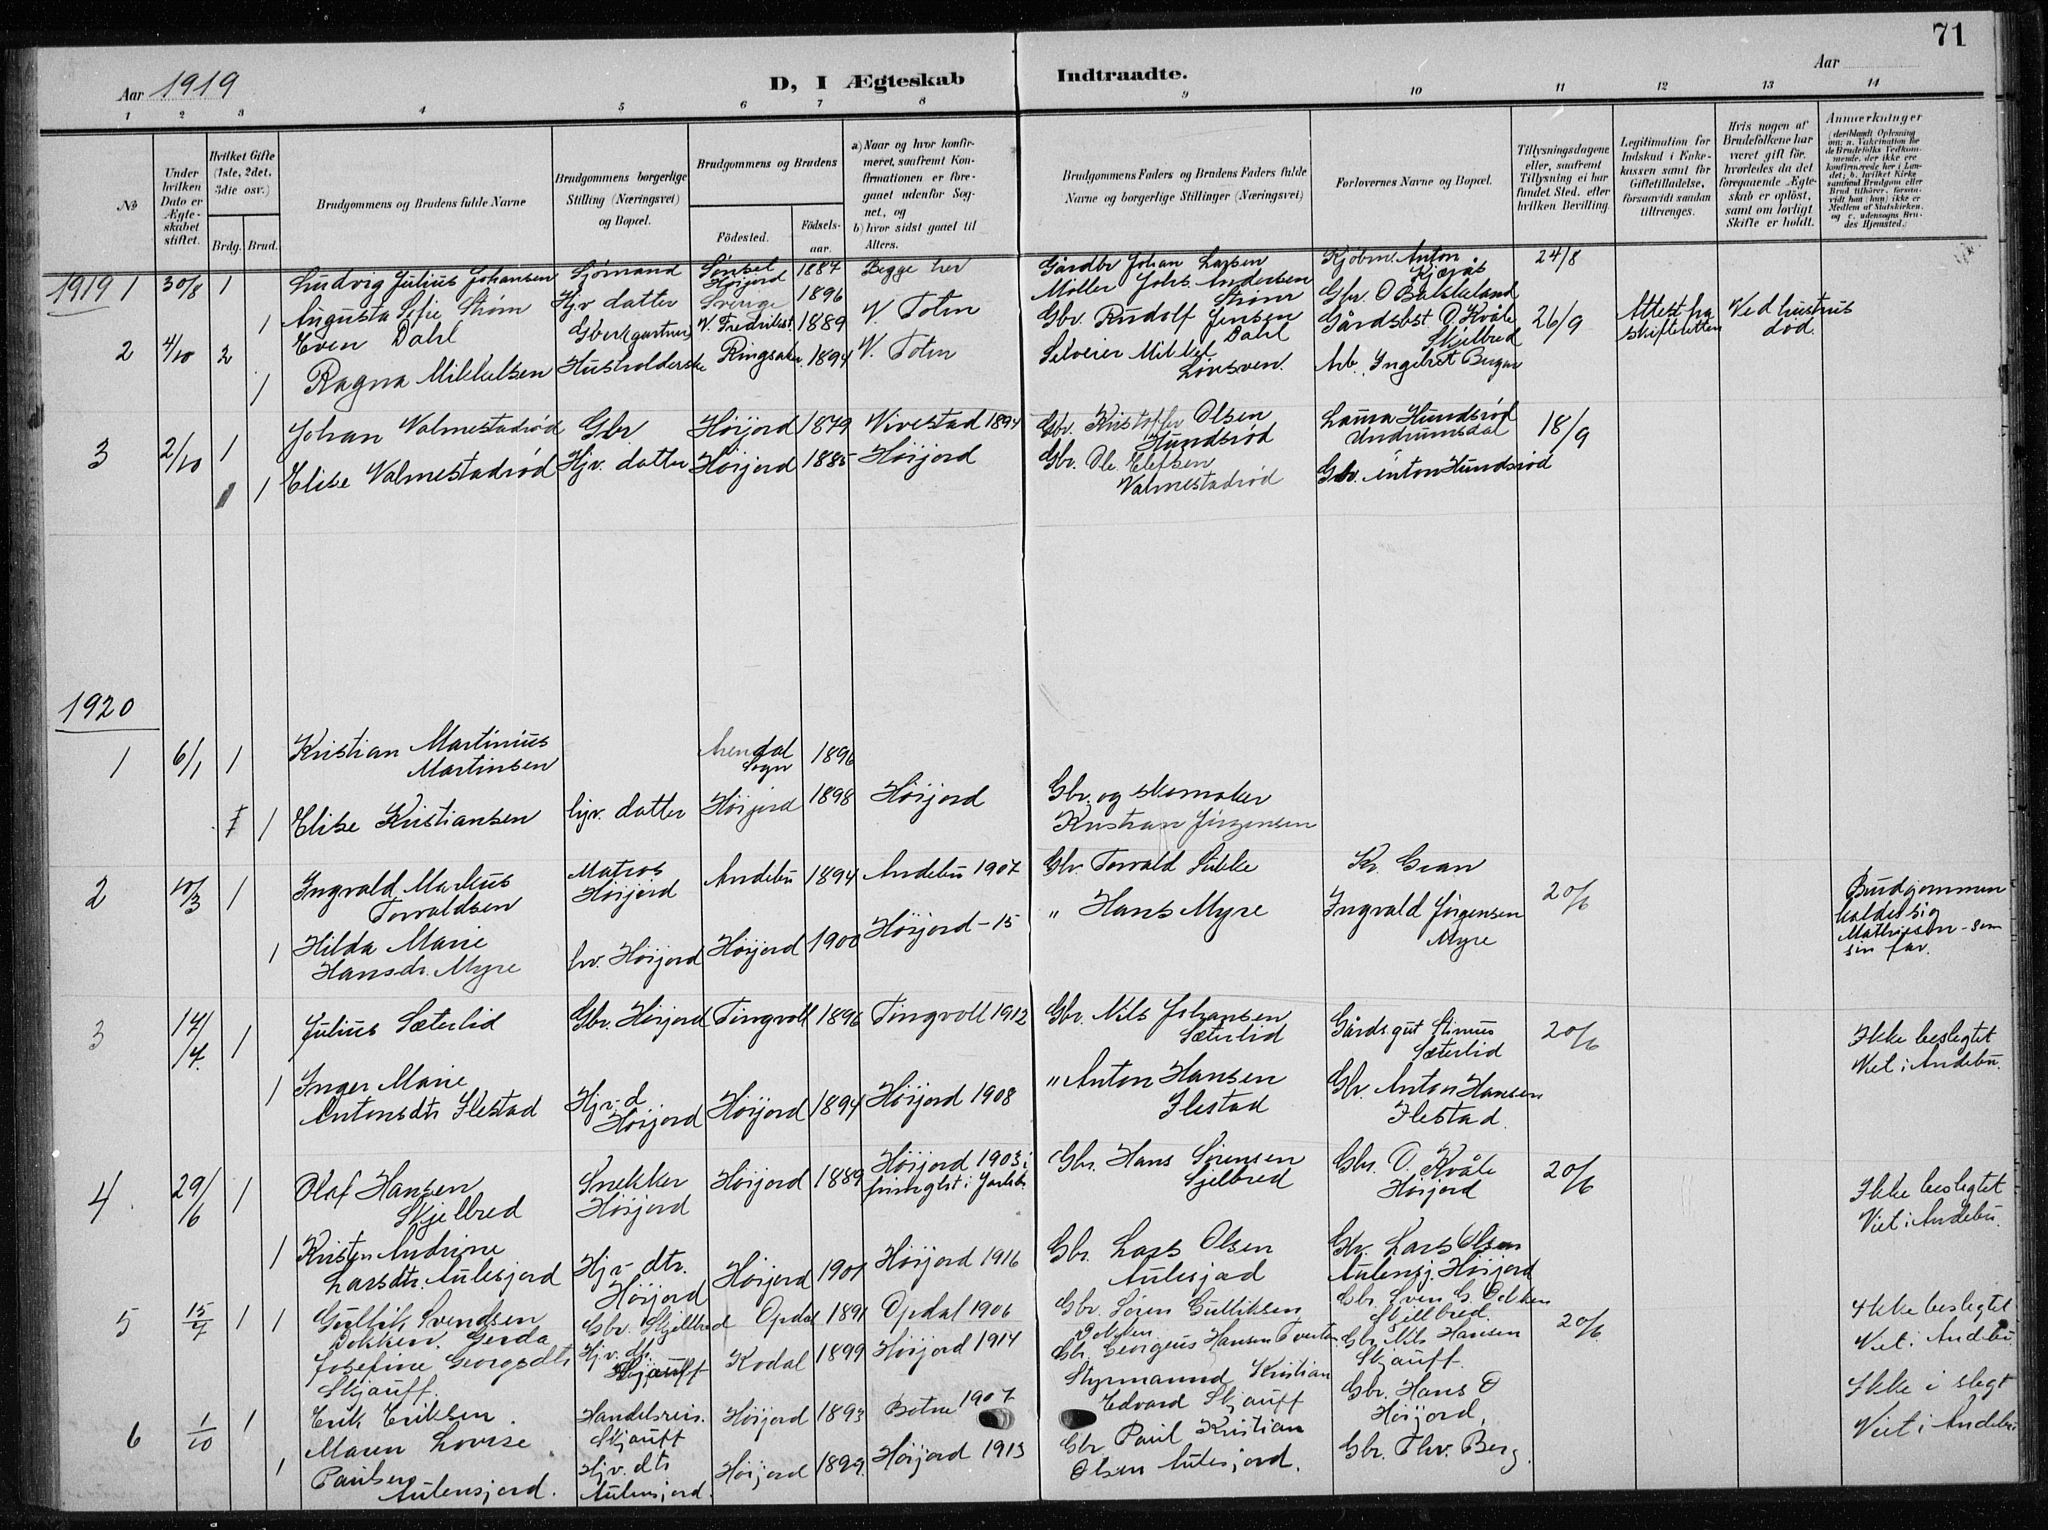 71
Aar 1919
D, I Ægteskab
Indtraadte.
Aar
1 2 3 4 5 6 7 8 9 10 11 12 13 14
No
Under hvilken Dato er Ægteskabet stiftet.
Hvilket Gifte (1ste, 2det, 3die osv.)
Brdg. Brud.
Brudgommens og Brudens fulde Navne
Brudgommens borgerlige Stilling (Næringsvei) og Bopæl.
Brudgommens og Brudens
Födested.
Födselsaar.
a) Naar og hvor konfirmeret, saafremt Konfirmationen er foregaaet udenför Sognet, og
b) hvor sidst gaaet til Alters.
Brudgommens Faders og Brudens Faders fulde Navne og borgerlige Stillinger (Næringsvei)
Forlovernes Navne og Bopæl.
Tillysningsdagene eller, saafremt Tillysning ei har fundet Sted, efter hvilken Bevilling.
Legitimation for Indskud i Enkekassen samt for Giftetilladelse, forsaavidt saadan tiltrænges.
Hvis nogen af Brudefolkene har været gift för, hvorledes da det foregaaende Ægteskab er oplöst, samt om lovligt Skifte er holdt.
Anmærkninger
1919 1 30/8 1 Ludvig Julius Johansen Sjömand Høijord 1887 Begge her Gårdbr Johan Larsen Kjøbm. Anton 24/8
1 Augusta Sofie Strøm Hjv. datter 1896 Møller Johs. Andersen Strøm Gbr. O Bakkeland
2 4/10 2 Even Dahl Gbr & gartner V. Fredrikst 1889 V. Toten Gbr. Rudolf Jensen Dahl Gårdsbst. O. Kvåle Skjelbred 26/9 Attest fra skifteretten Ved hustrus død.
1 Ragna Mikkelsen Husholderske Ringsaker 1894 V. Toten Mikkel Arb. Ingebret
3 2/10 1 Johan Valmestadrød Gbr Høijord 1879 Vivestad 1894 Gbr. Kristoffer Olsen Hundsrød Laura Hundsrød Undrumsdal 18/9
1 Elise Valmestadrød Hjv. datter Høijord 1885 Høijord Gbr. Ole Elefsen Valmestadrød Gbr. Anton Hundsrød
1920
1 6/1 1 Kristian Martinius Martinsen sogn 1896
1 Elise Kristiansen hjv. datter Høijord 1898 Høijord Gbr. og skomaker Kristian Jørgensen
2 10/3 1 Ingvald Markus Torvaldsen Matros Høijord Andebu 1894 Andebu 1907 Gbr. Torvald Kr. Gran 20/6 Brudgommen kalder sig Mathisen - som sin far.
1 Hilda Marie Hansdr. Myre hv. Høijord Høijord 1900 Høijord - 15 " Hans Myre Ingvald Jørgensen Myre
3 14/4 1 Julius Sæterlid Gbr. Høijord Tingvoll 1896 Tingvoll 1912 Gbr. Nils Johansen Sæterlid Gårdsgut Sæterlid 20/6 Ikke beslegtet Viet i Andebu.
1 Inger Marie Antonsdtr Ilestad Hjv. d Høijord Høijord 1894 Høijord 1908 " Anton Hansen Ilestad Gbr. Anton Hansen Ilestad.
4 29/6 1 Olaf Hansen Skjelbred Snekker Høijord Høijord 1889 Høijord 1903 Gbr. Hans Sørensen Sjelbred Gbr. O. Kvåle Høijord 20/6 Ikke beslegtet Viet i Andebu.
1 Kristen Andrine Larsdtr. Aulesjord Hjv. dtr. Høijord Høijord 1901 Høijord 1916 Gbr. Lars Olsen Aulesjad Gbr. Lars Olsen Aulensj. Høijord
5 15/7 1 1 Gullik Svendsen Dokken. Gerda Gbr. Skjelbred Opdal 1891 Opdal 1906 Gbr. Søren Gulliksen Dokken Gbr. Sven G. Dokken Skjelbred. 20/6 Ikke beslegtet Viet i Andebu
Josefine Georgsdtr Skjauff. Hjv. dtr. Skjauff Kodal 1899 Høijord 1914 Gbr. Georgius Hansen Gbr. Nils Hansen Skjauff.
6 1/10 1 Erik Eriksen. Handelsreis. Skjauff Høijord 1893 Botne 1907 Styrmannd Kristian Edvard Skjauff Gbr. Hans O Høijord. Ikke i slegt Viet i Andebu
1 Maren Lovise Paulsen Aulensjord. Hjv. dtr Aulensjord. Høijord 1899. Høijord 1913 Gbr Paul Kristian Olsen Aulesjord. Gbr. Thv. Berg.